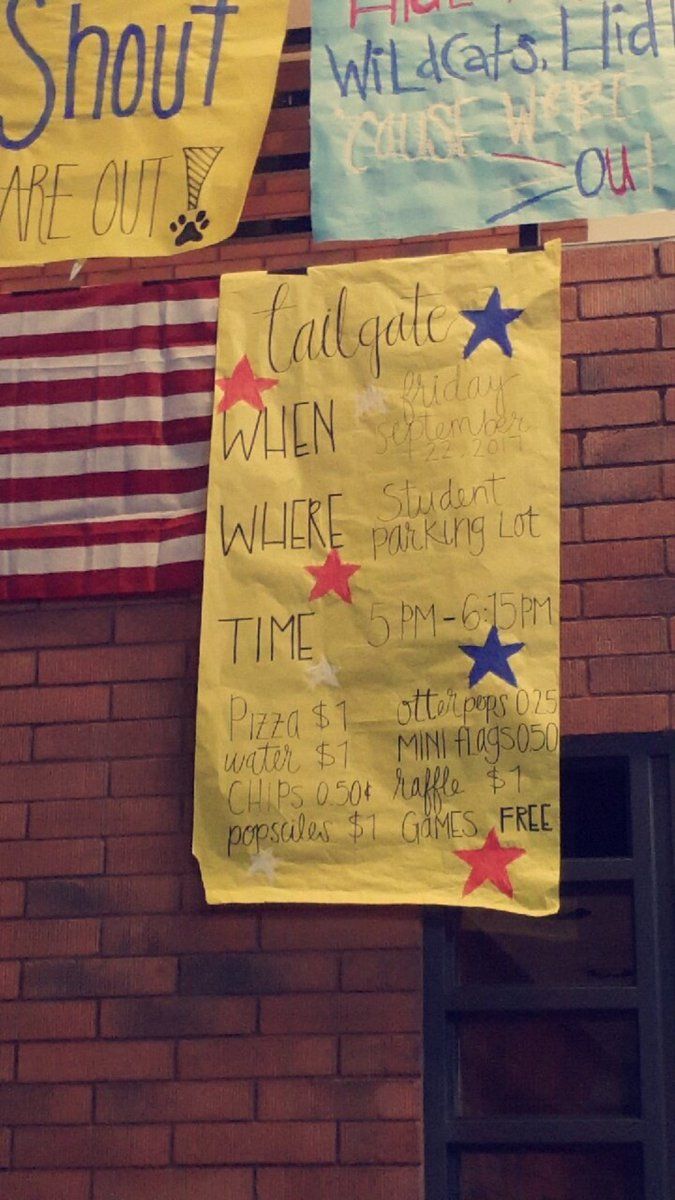 Shout
ARE OUT!
WildCats, Hid
'CAUSE WE'RE
OU
tailgate
WHEN friday
september
22, 2017
WHERE Student
parking Lot
TIME 5 PM - 6:15 PM
Pizza $1
water $1
CHIPS 0.50¢
popsciles $1
otterpops 0.25
MINI flags 0.50
raffle $1
GAMES FREE